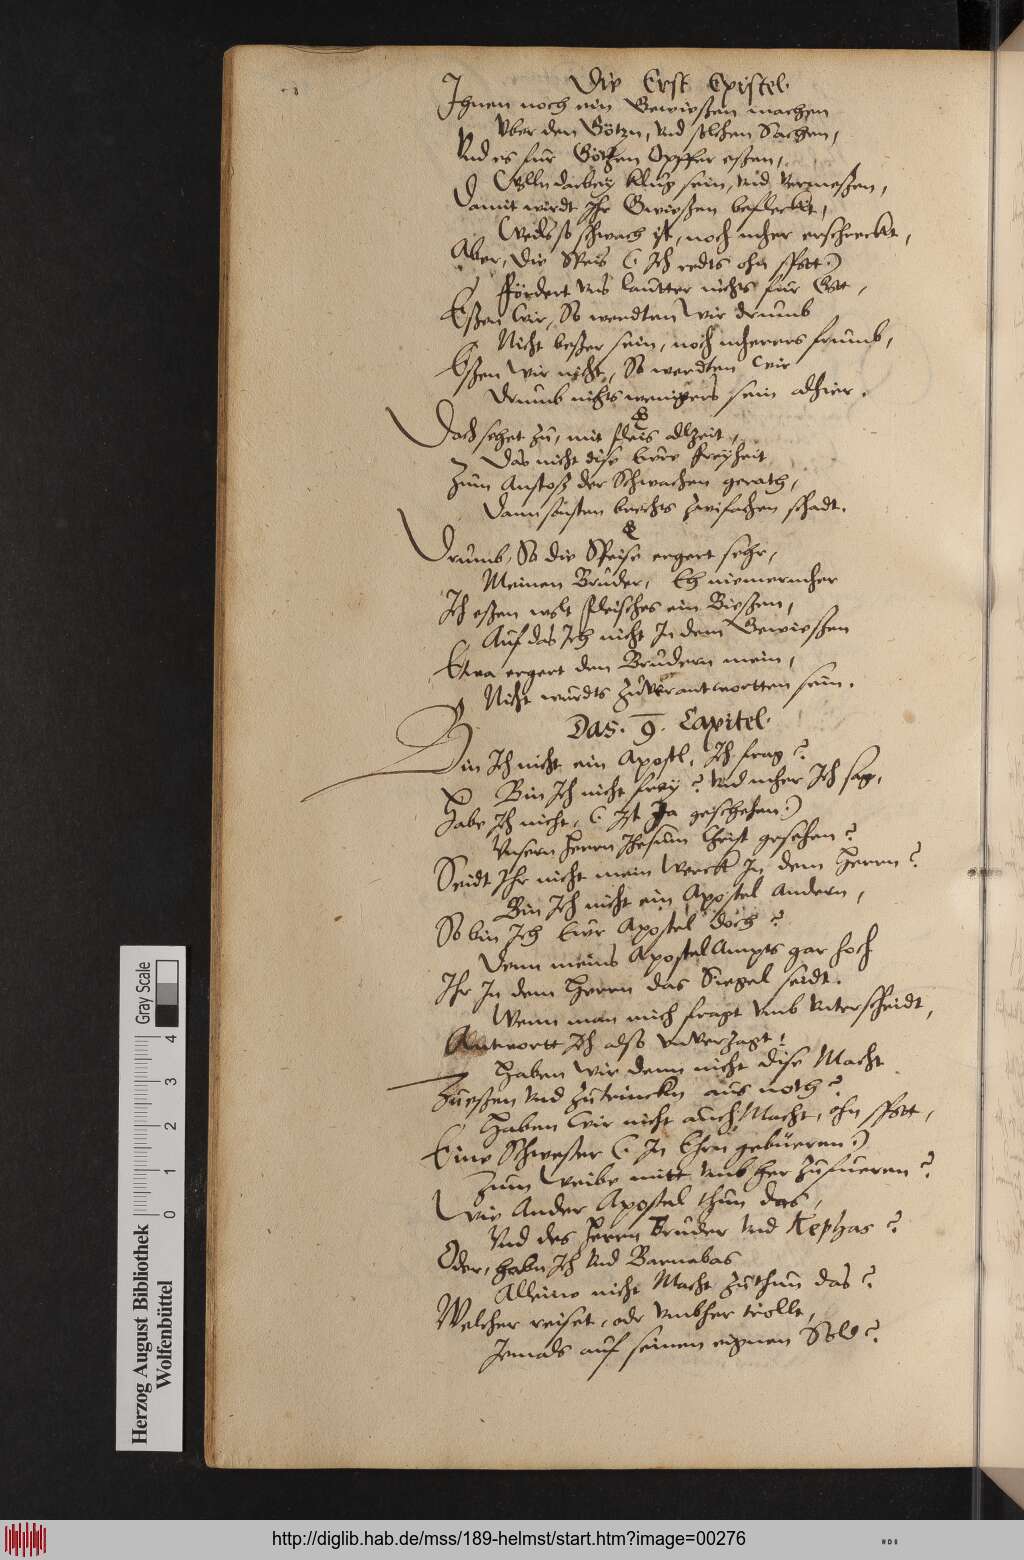 Die Erst Epistel.
Ihnen noch ein Gewießen machen
Vber den Götzn, vnd solchen Sachen,
Vnd es für Götzen Opffer eßen,
Wolln darbey klug sein, vnd vermeßen,
Damit wirdt Ihr Gwießen befleckt,
Weils so schwach ist, noch mher erschreckt,
Aber, die Speis (: Ich redts ohn spott:)
Fördert vns lautter nichts für Gott,
Eßen wir, So werdten wir drumb
Nicht beßer sein, noch mherers frumb,
Eßen wir nicht, So werdten wir
Drumb nichts wenigers sein alhier.
Doch sehet zu, mit fleis allzeit,
Das nicht dise Eure freyheit
Zum Anstoß der Schwachen gerath,
Dann sonsten brechts zwifachen schadt.
Drumb, So die Speise ergert sehr,
Meinen Bruder, Eh niemermher
Ich eßen wolt fleisches ein Bießen,
Auf das Ich nicht In dem Gewießen
Etwa ergert den Brudern mein,
Nicht wurdts zuverantwortten sein.
Das. 9. Capitel.
Bin Ich nicht ein Apostl, Ich frag?
Bin Ich nicht frey? vnd mher Ich sag,
Habe Ich nicht, (: Ist Ja geschehen:)
Vnsern Herrn Jhesum Christ gesehen?
Seidt Ihr nicht mein Werck In dem Herrn?
Bin Ich nicht ein Apostel Andern,
So bin Ich Ewr Apostel doch?
Denn meins Apostel Ampts gar hoch
Ihr In dem Herrn das Siegel seidt.
Wenn man mich fragt vmb vnterscheidt,
Antwortt Ich also vnverzagt:
Haben wir denn nicht dise Macht
Zu eßen vnd zu trinckn aus noth?
Haben wir nicht auch Macht, ohn spott,
Eine Schwester (: In Ehrn gebüeren:)
Zum Weibe mitt vmbher zufueren?
Wie Ander Apostel thun das,
Vnd des Herrn Bruder vnd Kephas?
Oder, habn Ich vnd Barnabas
Alleine nicht Macht zuthun das?
Welcher reiset, odr vmbher trollt,
Jemals auf seinen eignen Sold?
Herzog August Bibliothek
Wolfenbüttel
Gray Scale
0 1 2 3 4
http://diglib.hab.de/mss/189-helmst/start.htm?image=00276